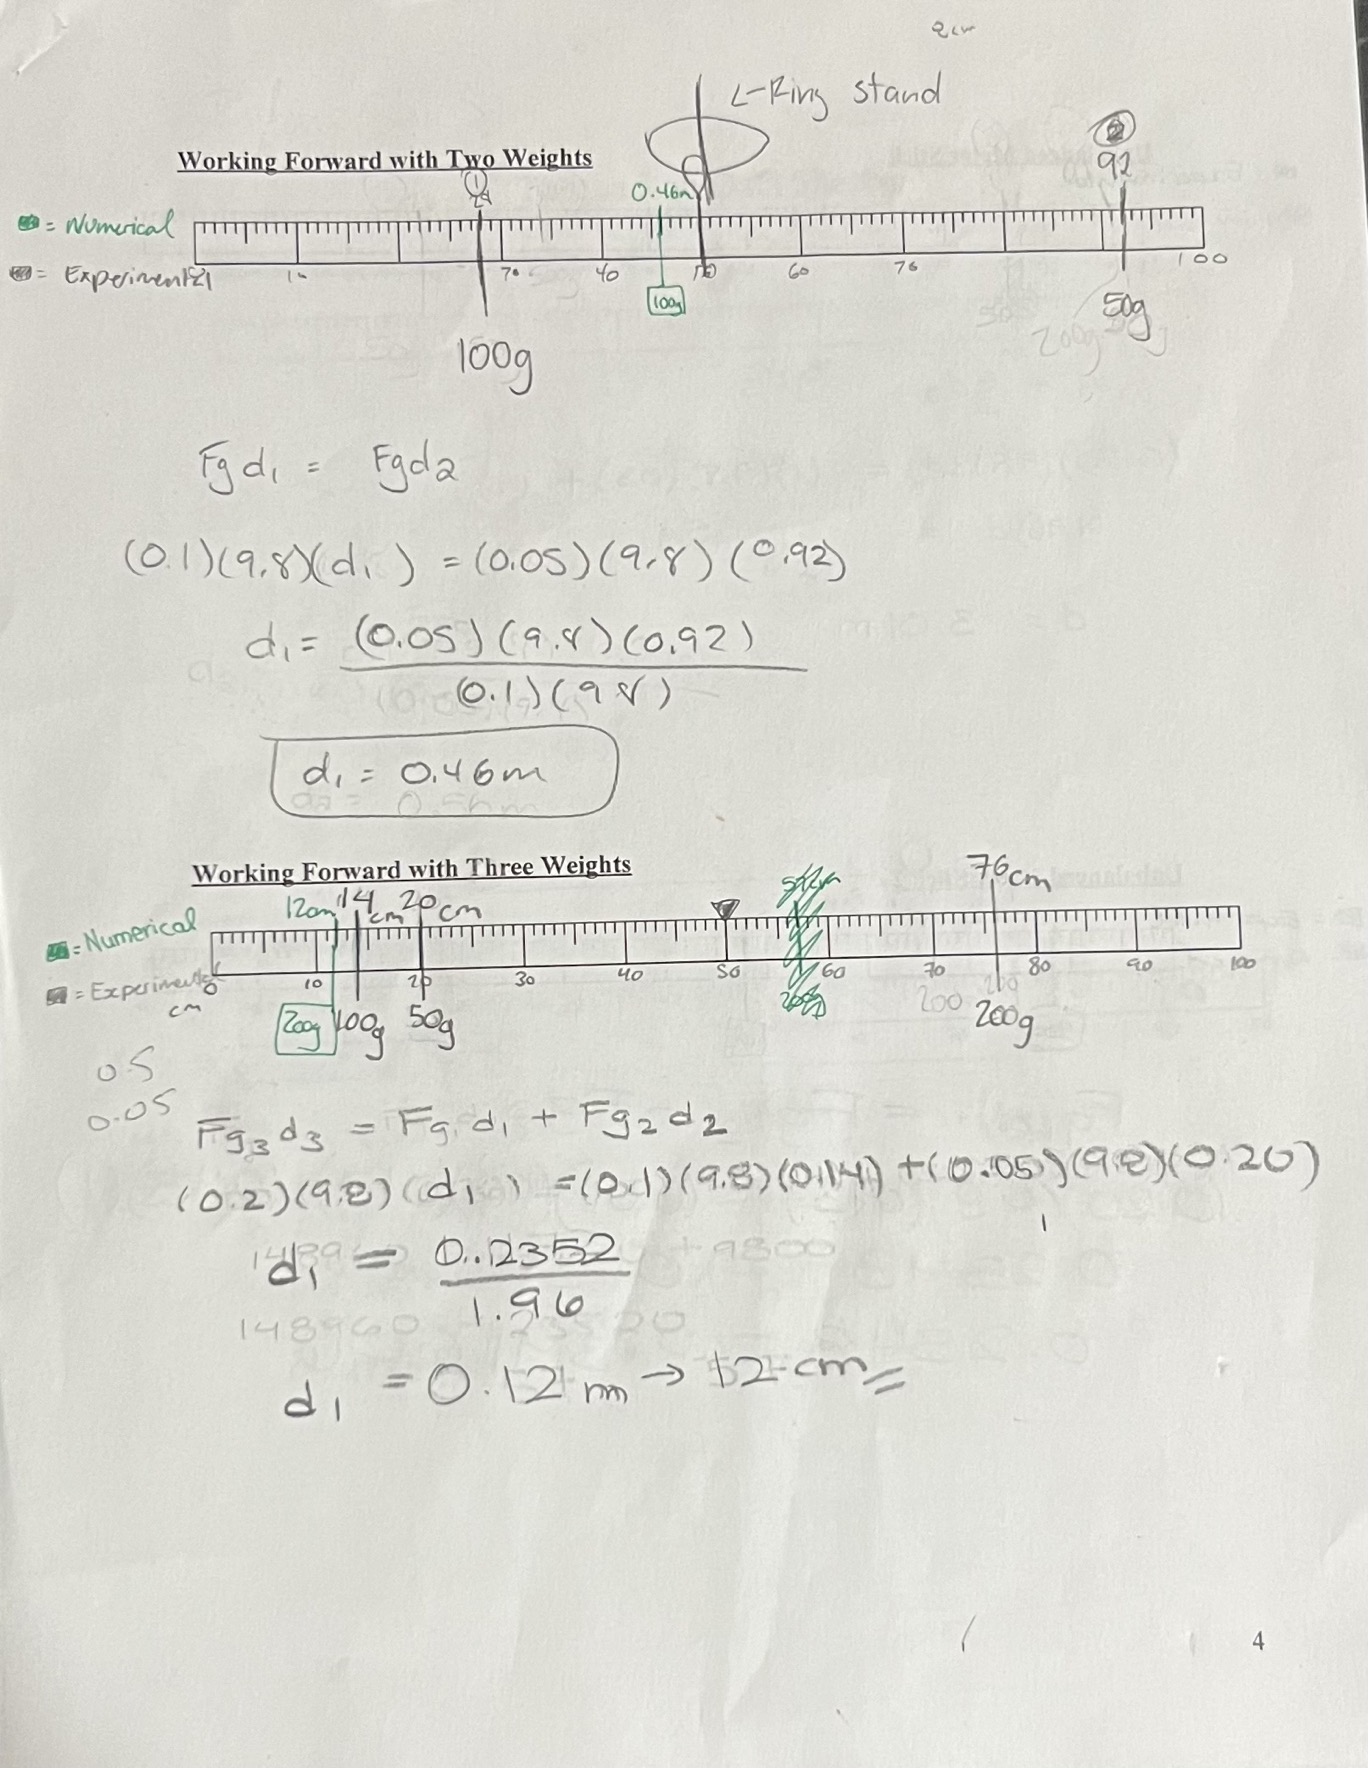 2cm
L-Ring stand
Working Forward with Two Weights
1
2
92
0.46m
= Numerical
= Experimental
10 40 50 60 70 100
100g
50g
200g
100g
Fg d1 = Fg d2
(0.1)(9.8)(d1) = (0.05)(9.8)(0.92)
d1 = (0.05)(9.8)(0.92)
(0.1)(98)
d1 = 0.46m
Working Forward with Three Weights
76cm
12cm 14cm 20cm
= Numerical
0 10 20 30 40 50 60 70 80 90 100
= Experimental
cm
200g 100g 50g
200
200g
0.5
0.05
Fg3 d3 = Fg1 d1 + Fg2 d2
(0.2)(9.8)(d1) = (0.1)(9.8)(0.14) + (0.05)(9.8)(0.20)
d1 = 0.2352
+9800
1.96
148960 23520
d1 = 0.12m → 12 cm
4